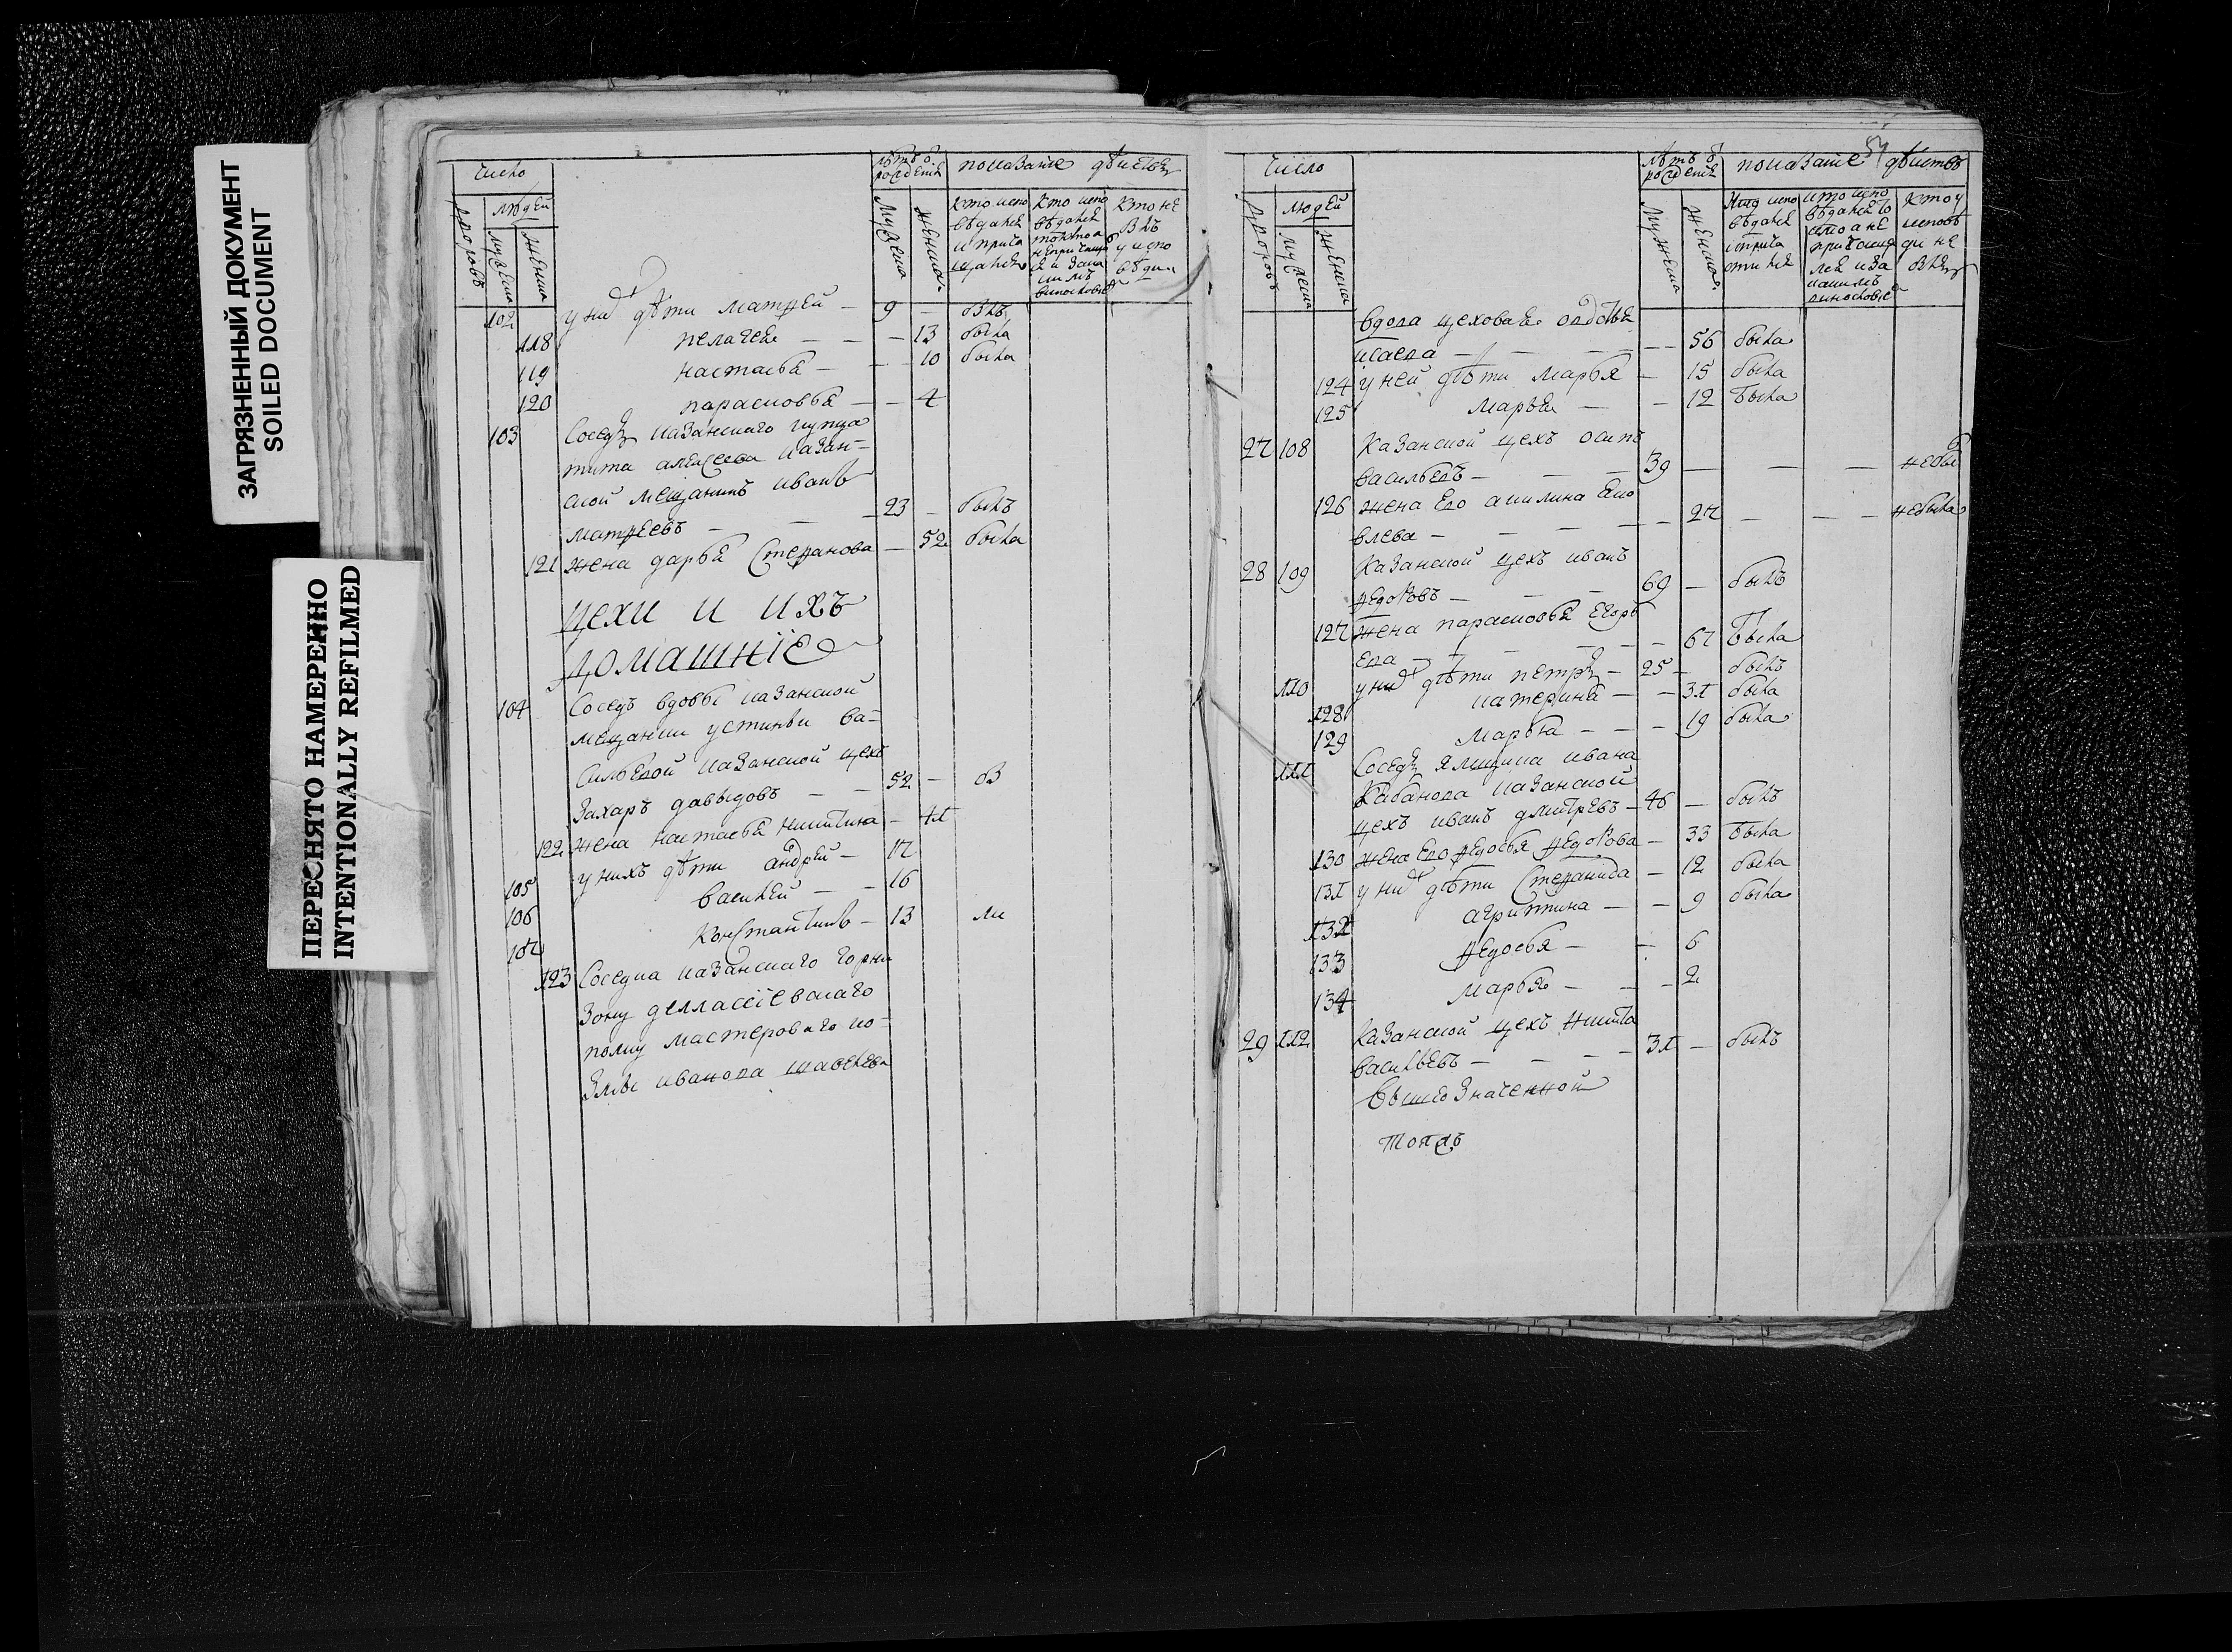 ЗАГРЯЗНЕННЫЙ ДОКУМЕНТ
SOILED DOCUMENT
ПЕРЕСНЯТО НАМЕРЕННО
INTENTIONALLY REFILMED
число
людей
дворовъ
мужеска
женска
мужеска
женска
показание
102 у них дѣти матфей — 9 —
118 пелагея — — — 13 была
119 настасья — — — 10 была
120 парасковья — — 4
103 Соседъ казанскаго купца
тита алексеева казан-
ской мещанинъ иванъ
матфеевъ — — — 23 — былъ
121 жена дарья степанова — 52 была
цехи и ихъ
домашніе
104 Соседъ вдовы казанской
мещанки устиньи ва-
сильевой казанской цехъ
Захаръ давыдовъ — — 52 —
122 жена настасья никитина — 41
105 у нихъ дѣти андрей — 17
106 василей — — 16
107 константинъ — 13
123 Соседка казанскаго горни
зону
полку мастероваго ко-
змы иванова
51
число
людей
дворовъ
мужеска
женска
мужеска
женска
показание
вдова цеховая авдотья
исаева — — — — 56 была
124 у ней дѣти марья — 15 была
125 марья — — 12 была
27 108 Казанской цехъ осипъ
васильевъ — — — 39 — — —
126 жена его акилина яко
влева — — — — 27 — — — небыла
28 109 Казанской цехъ иванъ
федоровъ — — — 69 — былъ
127 жена парасковья егорь
ева — — — — 67 была
110 у них дѣти петръ — 25 — былъ
128 катерина — — 31 была
129 марья — — — 19 была
111 Соседъ ямщика ивана
Кабанова казанской
цехъ иванъ дмитревъ — 46 — былъ
130 жена его федосья федорова — 33 была
131 у них дѣти степанида — 12 была
132 агрипина — — 9 была
133 федосья — — 6
134 марья — — — 2
29 112 Казанской цехъ никита
васильевъ — — — — 31 — былъ
вышеозначенной